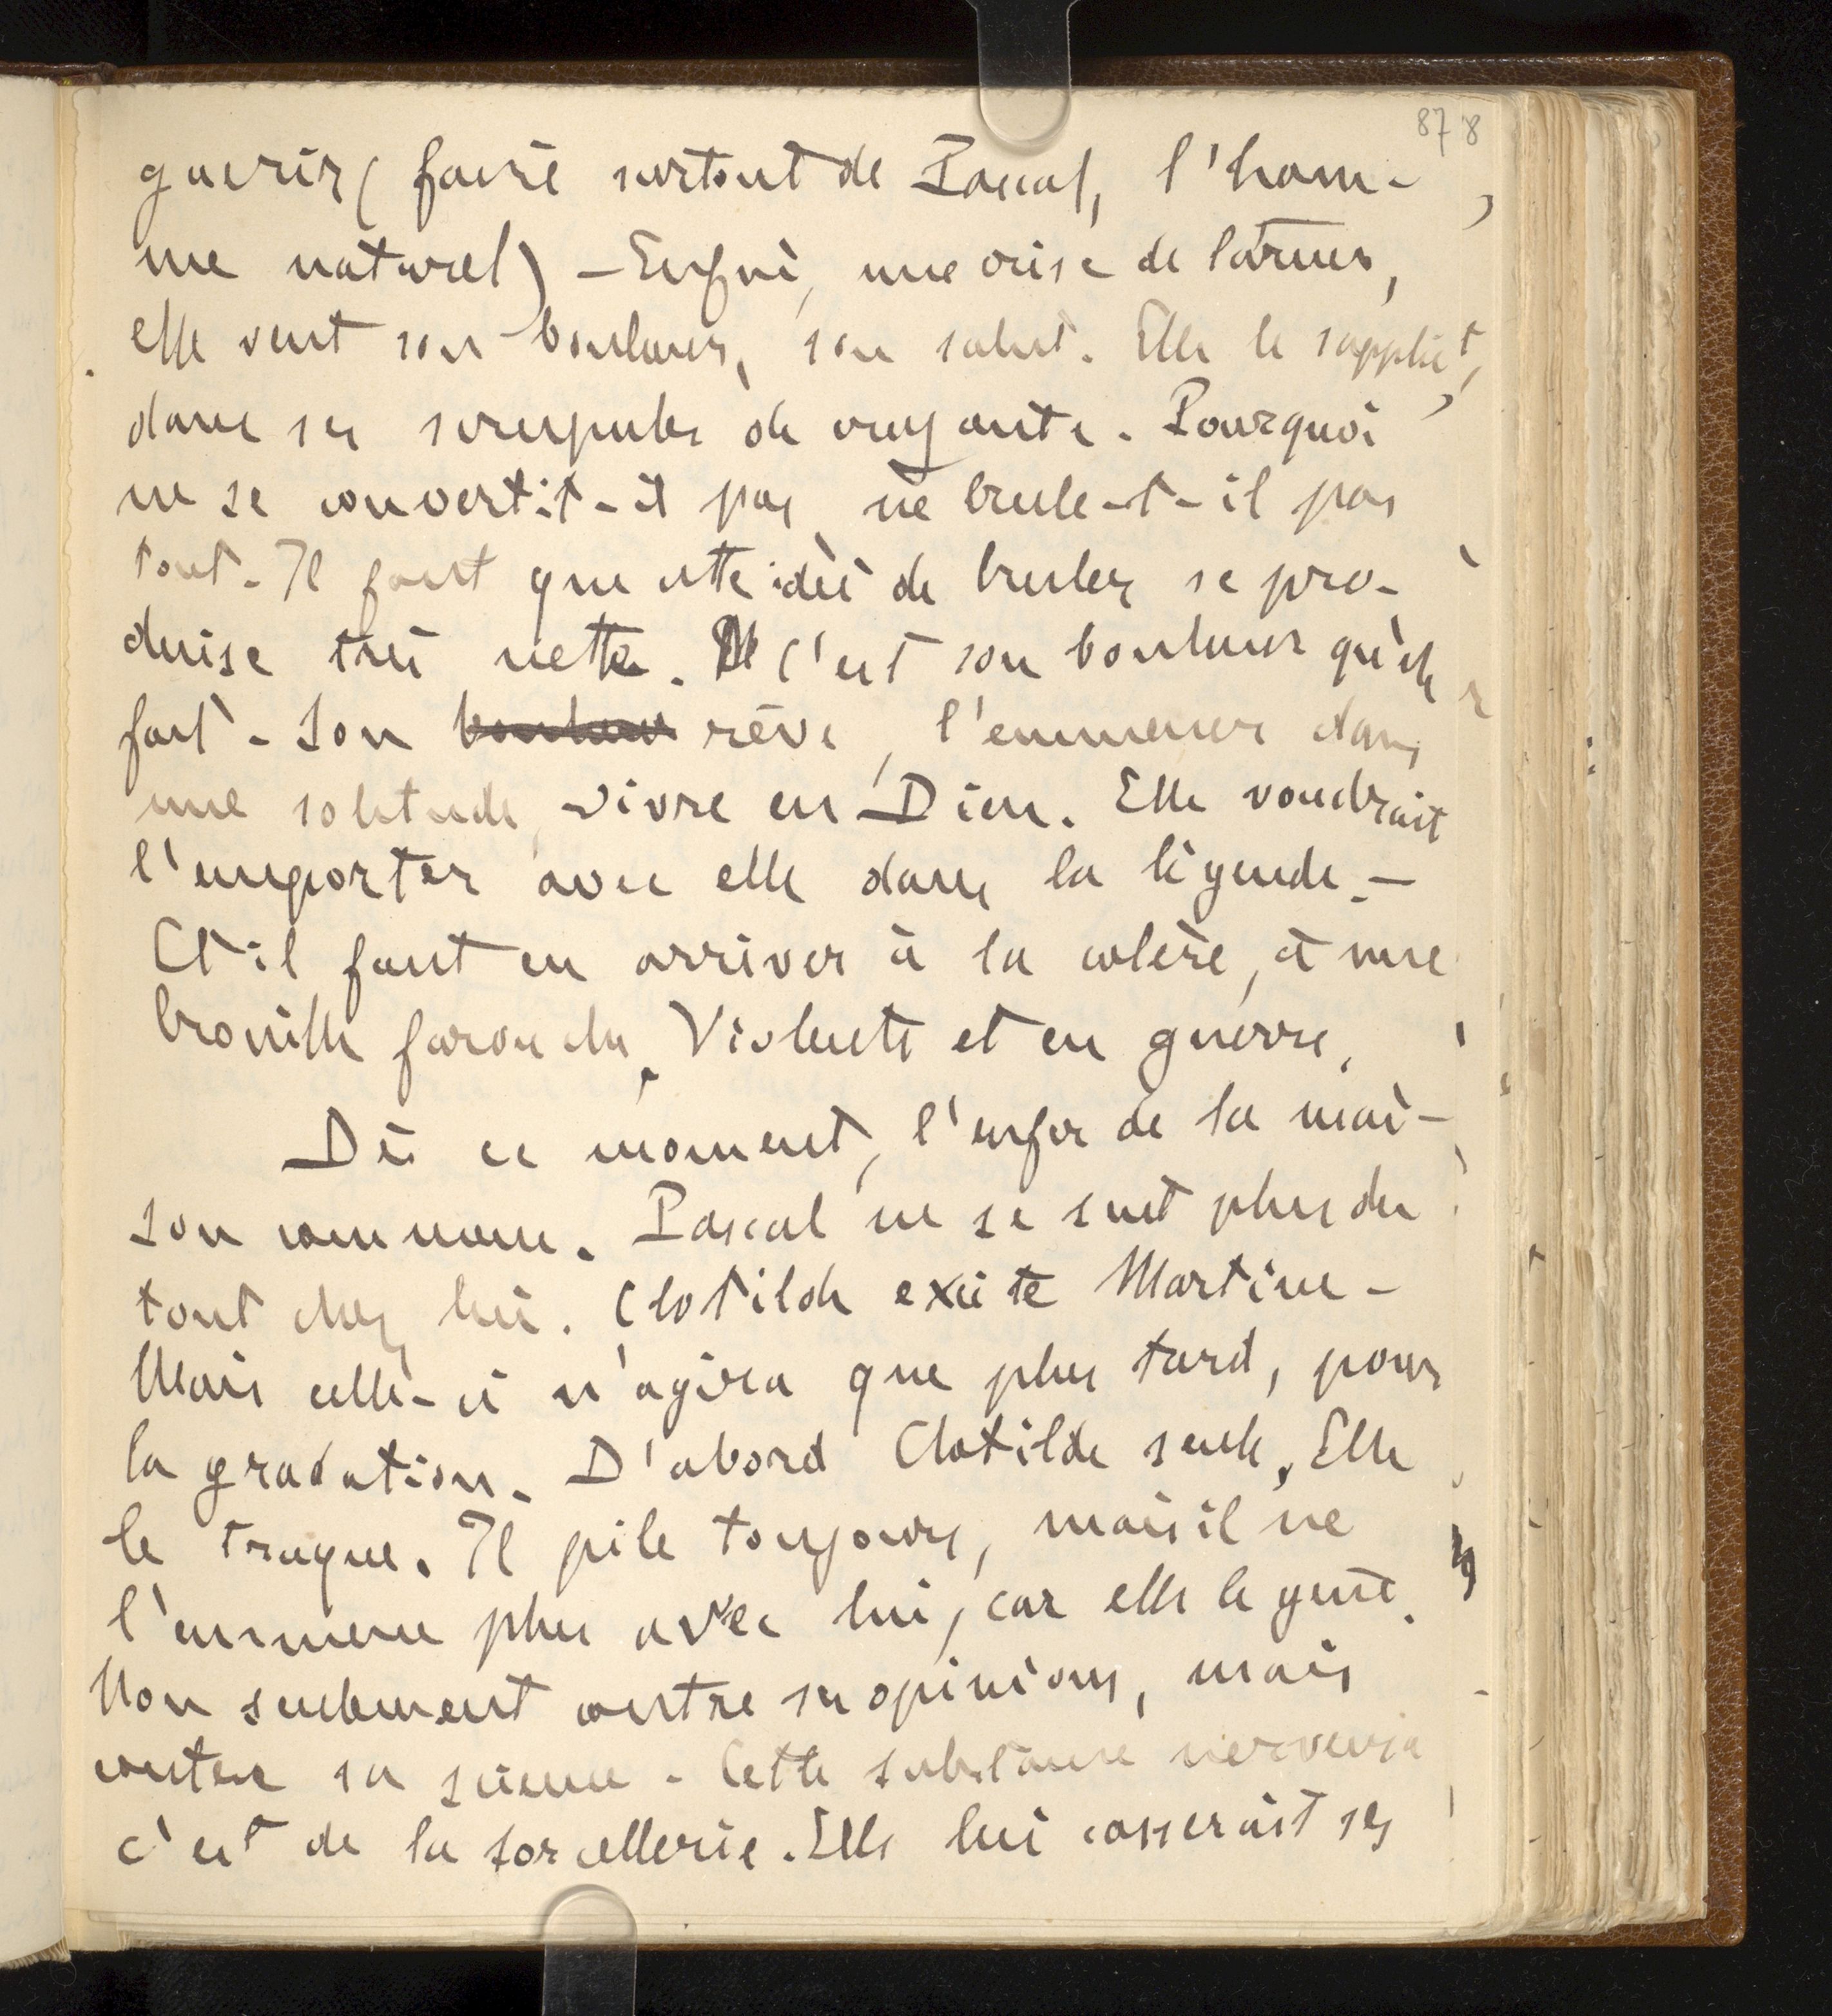 87 8
guérir (faire surtout de Pascal, l'hom-
me naturel) — Enfin, une crise de larmes,
elle veut son bonheur, son salut. Elle le supplie,
dans ses scrupules de croyante. Pourquoi
ne se convertit-il pas, ne brule-t-il pas
tout. Il faut que cette idée de bruler se pro-
duise très nette. C'est son bonheur qu'elle
fait. Son bonheur rêve, l'emmener dans
une solitude, vivre en Dieu. Elle voudrait
l'emporter avec elle dans la légende. —
Et il faut en arriver à la colère, à une
brouille farouche, Violente et en guerre.
Dès ce moment, l'enfer de la mai-
son commence. Pascal ne se sent plus du
tout chez lui. Clotilde excite Martine -
Mais celle-ci n'agira que plus tard, pour
la gradation. D'abord Clotilde seule. Elle
le traque. Il pile toujours, mais il ne
l'emmène plus avec lui, car elle le gêne.
Non seulement contre ses opinions, mais
contre sa science. Cette substance nerveuse
c'est de la sorcellerie. Elle lui casserait ses